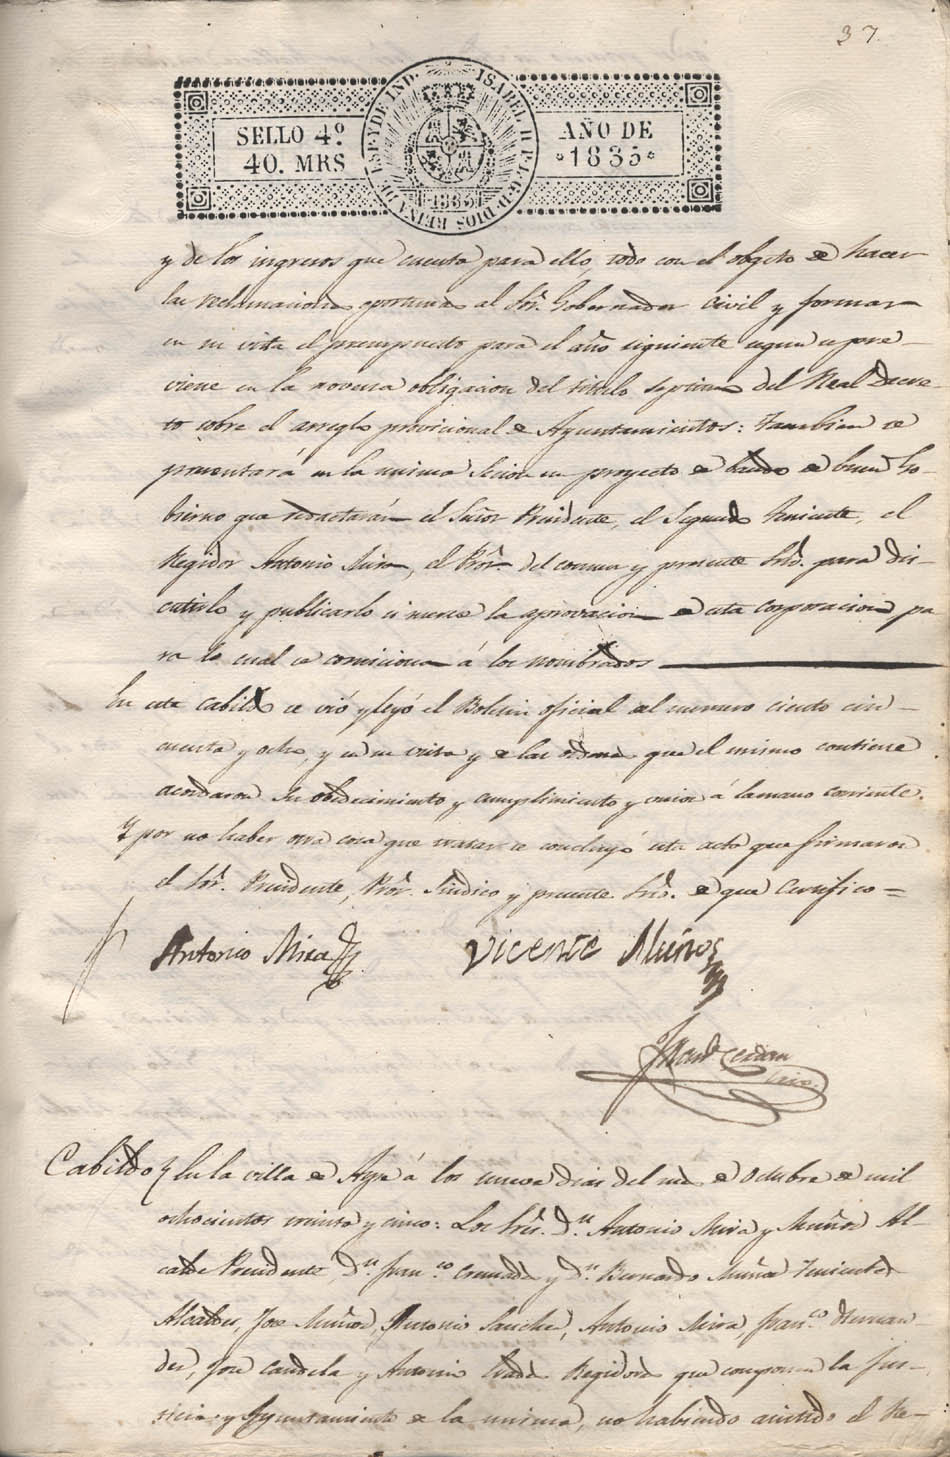 37.
SELLO 4º
40. MRS
ISABEL II P. L. G. D. DIOS REINA DE ESP. Y DE IND.
1835
AÑO DE
1835
y de los ingresos que cuenta para ello, todo con el objeto de hacer
las reclamaciones oportunas al Sor. Gobernador Civil y formar
en su vista el presupuesto para el año siguiente segun se pre-
viene en la novena obligacion del titulo septimo del Real Decre-
to sobre el arreglo provicional de Ayuntamientos: Tambien se
presentará en la misma Secion un proyecto de bando de buen Go-
bierno que redactarán el Señor Presidente, el Segundo Teniente, el
Regidor Antonio Mira, el Pror. del comun y presente Srio. para dis-
cutirlo y publicarlo si merece la aprovacion de esta corporacion pa
ra lo cual se comiciona á los nombrados
En este Cabildo se vió y leyó el Boletin oficial del numero ciento cin-
cuenta y ocho, y en su vista y de las ordenes que el mismo contiene
acordaron su obedecimiento y cumplimiento y unir á la mano corriente.
Y por no haber otra cosa que tratar se concluyó esta acta que firmaron
el Sor. Presidente, Pror. Sindico y presente Srio. de que Certifico=
Antonio Mira
Vicente Muñoz
Cerdan
Srio.
Cabildo
En la villa de Aspe á los nueve dias del mes de Octubre de mil
ochocientos treinta y cinco: Los Sres. Dn. Antonio Mira y Muñoz Al-
calde Presidente, Dn. Franco. Cremades y Dn. Bernardo Muñoz Tenientes
Alcaldes, Jose Muñoz, Antonio Sanchez, Antonio Mira, Franco. Hernan-
dez, Jose Candela y Antonio Regidores que componen la Jus-
ticia y Ayuntamiento de la misma, no habiendo asistido el Re-